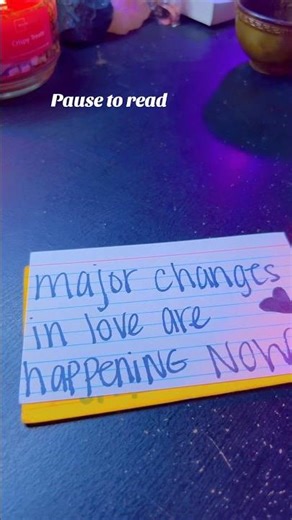 Pause to read
major changes
in love are
happening NOW